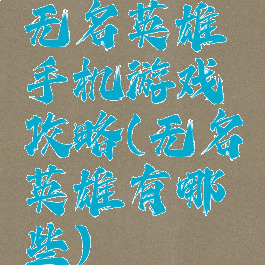 无名英雄
手机游戏
攻略(无名
英雄有哪
些)